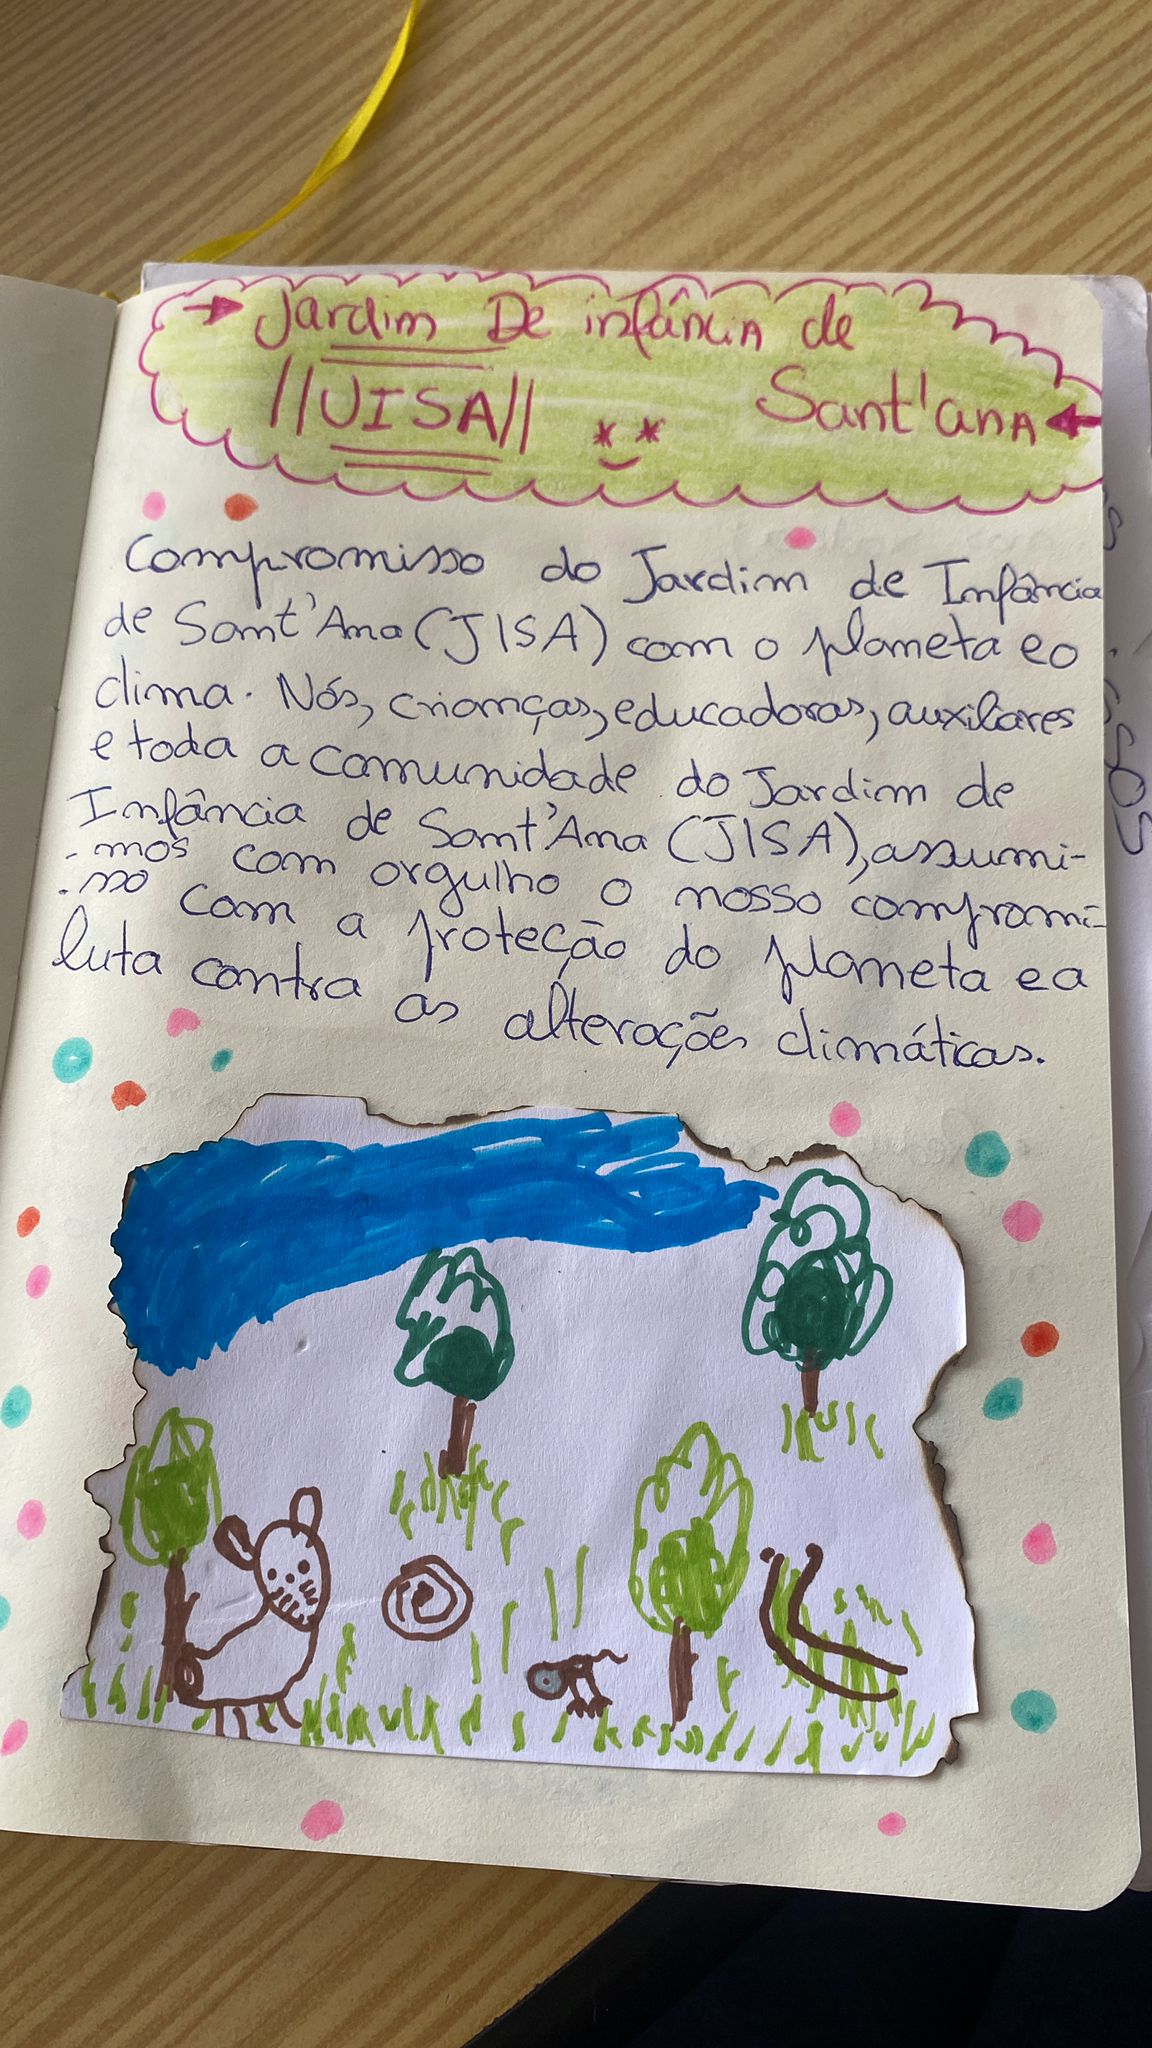 Jardim De infância de
||JISA|| Sant'ana
Compromisso do Jardim de Infância
de Sant'Ana (JISA) com o planeta e o
clima. Nós, crianças, educadoras, auxiliares
e toda a comunidade do Jardim de
Infância de Sant'Ana (JISA), assumi-
-mos com orgulho o nosso compromi-
-sso com a proteção do planeta e a
luta contra as alterações climáticas.